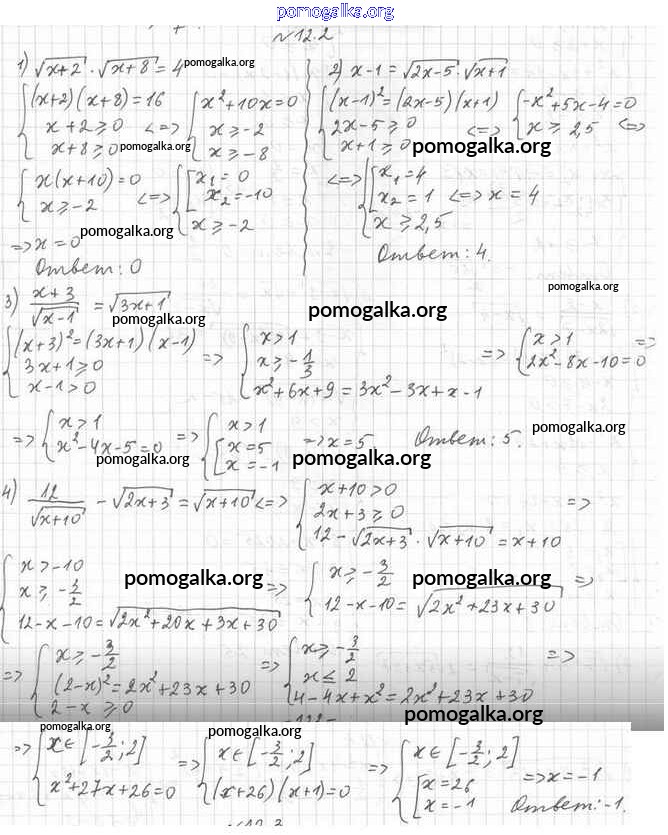 pomogalka.org
№12.2
1) √(x+2) · √(x+8) = 4 pomogalka.org
{ (x+2)(x+8)=16
x+2≥0
x+8≥0 pomogalka.org
<=> { x²+10x=0
x≥-2
x≥-8
{ x(x+10)=0
x≥-2
<=> { [ x₁=0
x₂=-10
x≥-2
=> x=0 pomogalka.org
Ответ: 0
2) x-1=√(2x-5) · √(x+1)
{ (x-1)²=(2x-5)(x+1)
2x-5≥0
x+1≥0 pomogalka.org
<=> { -x²+5x-4=0
x≥2,5 <=>
<=> { [ x₁=4
x₂=1
x≥2,5
<=> x=4
Ответ: 4.
pomogalka.org
3) (x+3)/√(x-1) = √(3x+1)
pomogalka.org
pomogalka.org
{ (x+3)²=(3x+1)(x-1)
3x+1≥0
x-1>0
=> { x>1
x≥-1/3
x²+6x+9=3x²-3x+x-1
=> { x>1
2x²-8x-10=0 =>
=> { x>1
x²-4x-5=0
pomogalka.org
=> { x>1
[ x=5
x=-1
=> x=5
pomogalka.org
Ответ: 5.
pomogalka.org
4) 12/√(x+10) - √(2x+3) = √(x+10) <=> { x+10>0
2x+3≥0
12-√(2x+3) · √(x+10) = x+10
=>
{ x>-10
x≥-3/2
12-x-10=√(2x²+20x+3x+30)
pomogalka.org
=> { x≥-3/2
12-x-10=√(2x²+23x+30)
pomogalka.org
=>
=> { x≥-3/2
(2-x)²=2x²+23x+30
2-x≥0
=> { x≥-3/2
x≤2
4-4x+x²=2x²+23x+30
=>
pomogalka.org
pomogalka.org
pomogalka.org
=> { x∈[-3/2;2]
x²+27x+26=0
=> { x∈[-3/2;2]
(x+26)(x+1)=0
=> { x∈[-3/2;2]
[ x=26
x=-1
=> x=-1
Ответ: -1.